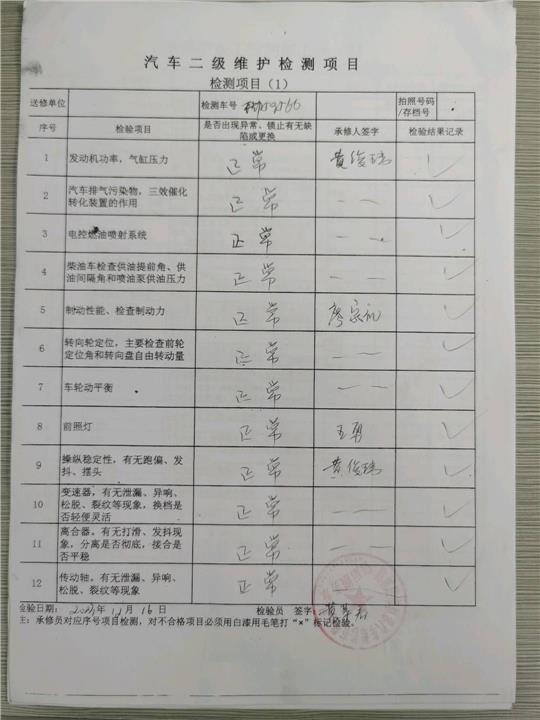 汽车二级维护检测项目
检测项目（1）
送修单位 检测车号 拍照号码/存档号
序号 检验项目 是否出现异常、锁止有无缺陷或更换 承修人签字 检验结果记录
1 发动机功率，气缸压力 正常 黄俊 ✓
2 汽车排气污染物，三效催化转化装置的作用 正常 — — ✓
3 电控燃油喷射系统 正常 — — ✓
4 柴油车检查供油提前角、供油间隔角和喷油泵供油压力 正常 — — ✓
5 制动性能、检查制动力 正常 廖宗礼 ✓
6 转向轮定位，主要检查前轮定位角和转向盘自由转动量 正常 — — ✓
7 车轮动平衡 正常 — — ✓
8 前照灯 正常 王勇 ✓
9 操纵稳定性，有无跑偏、发抖、摆头 正常 黄俊 ✓
10 变速器，有无泄漏、异响、松脱、裂纹等现象，换档是否轻便灵活 正常 — — ✓
11 离合器，有无打滑、发抖现象，分离是否彻底，接合是否平稳 正常 — — ✓
12 传动轴，有无泄漏、异响、松脱、裂纹等现象 正常 — — ✓
检验日期： 年 月 16日 检验员 签字：黄
主：承修员对应序号项目检测，对不合格项目必须用白漆用毛笔打“×”标记检验。